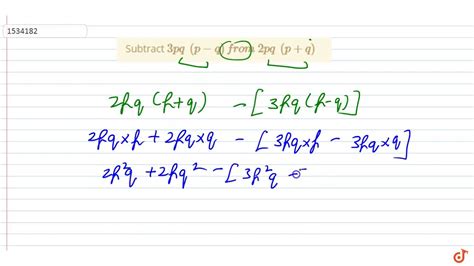 1534182
Subtract 3pq (p − q) from 2pq (p + q)
2pq (p+q) - [3pq(p-q)]
2pq×p + 2pq×q - [3pq×p - 3pq×q]
2p²q + 2pq² - [3p²q -